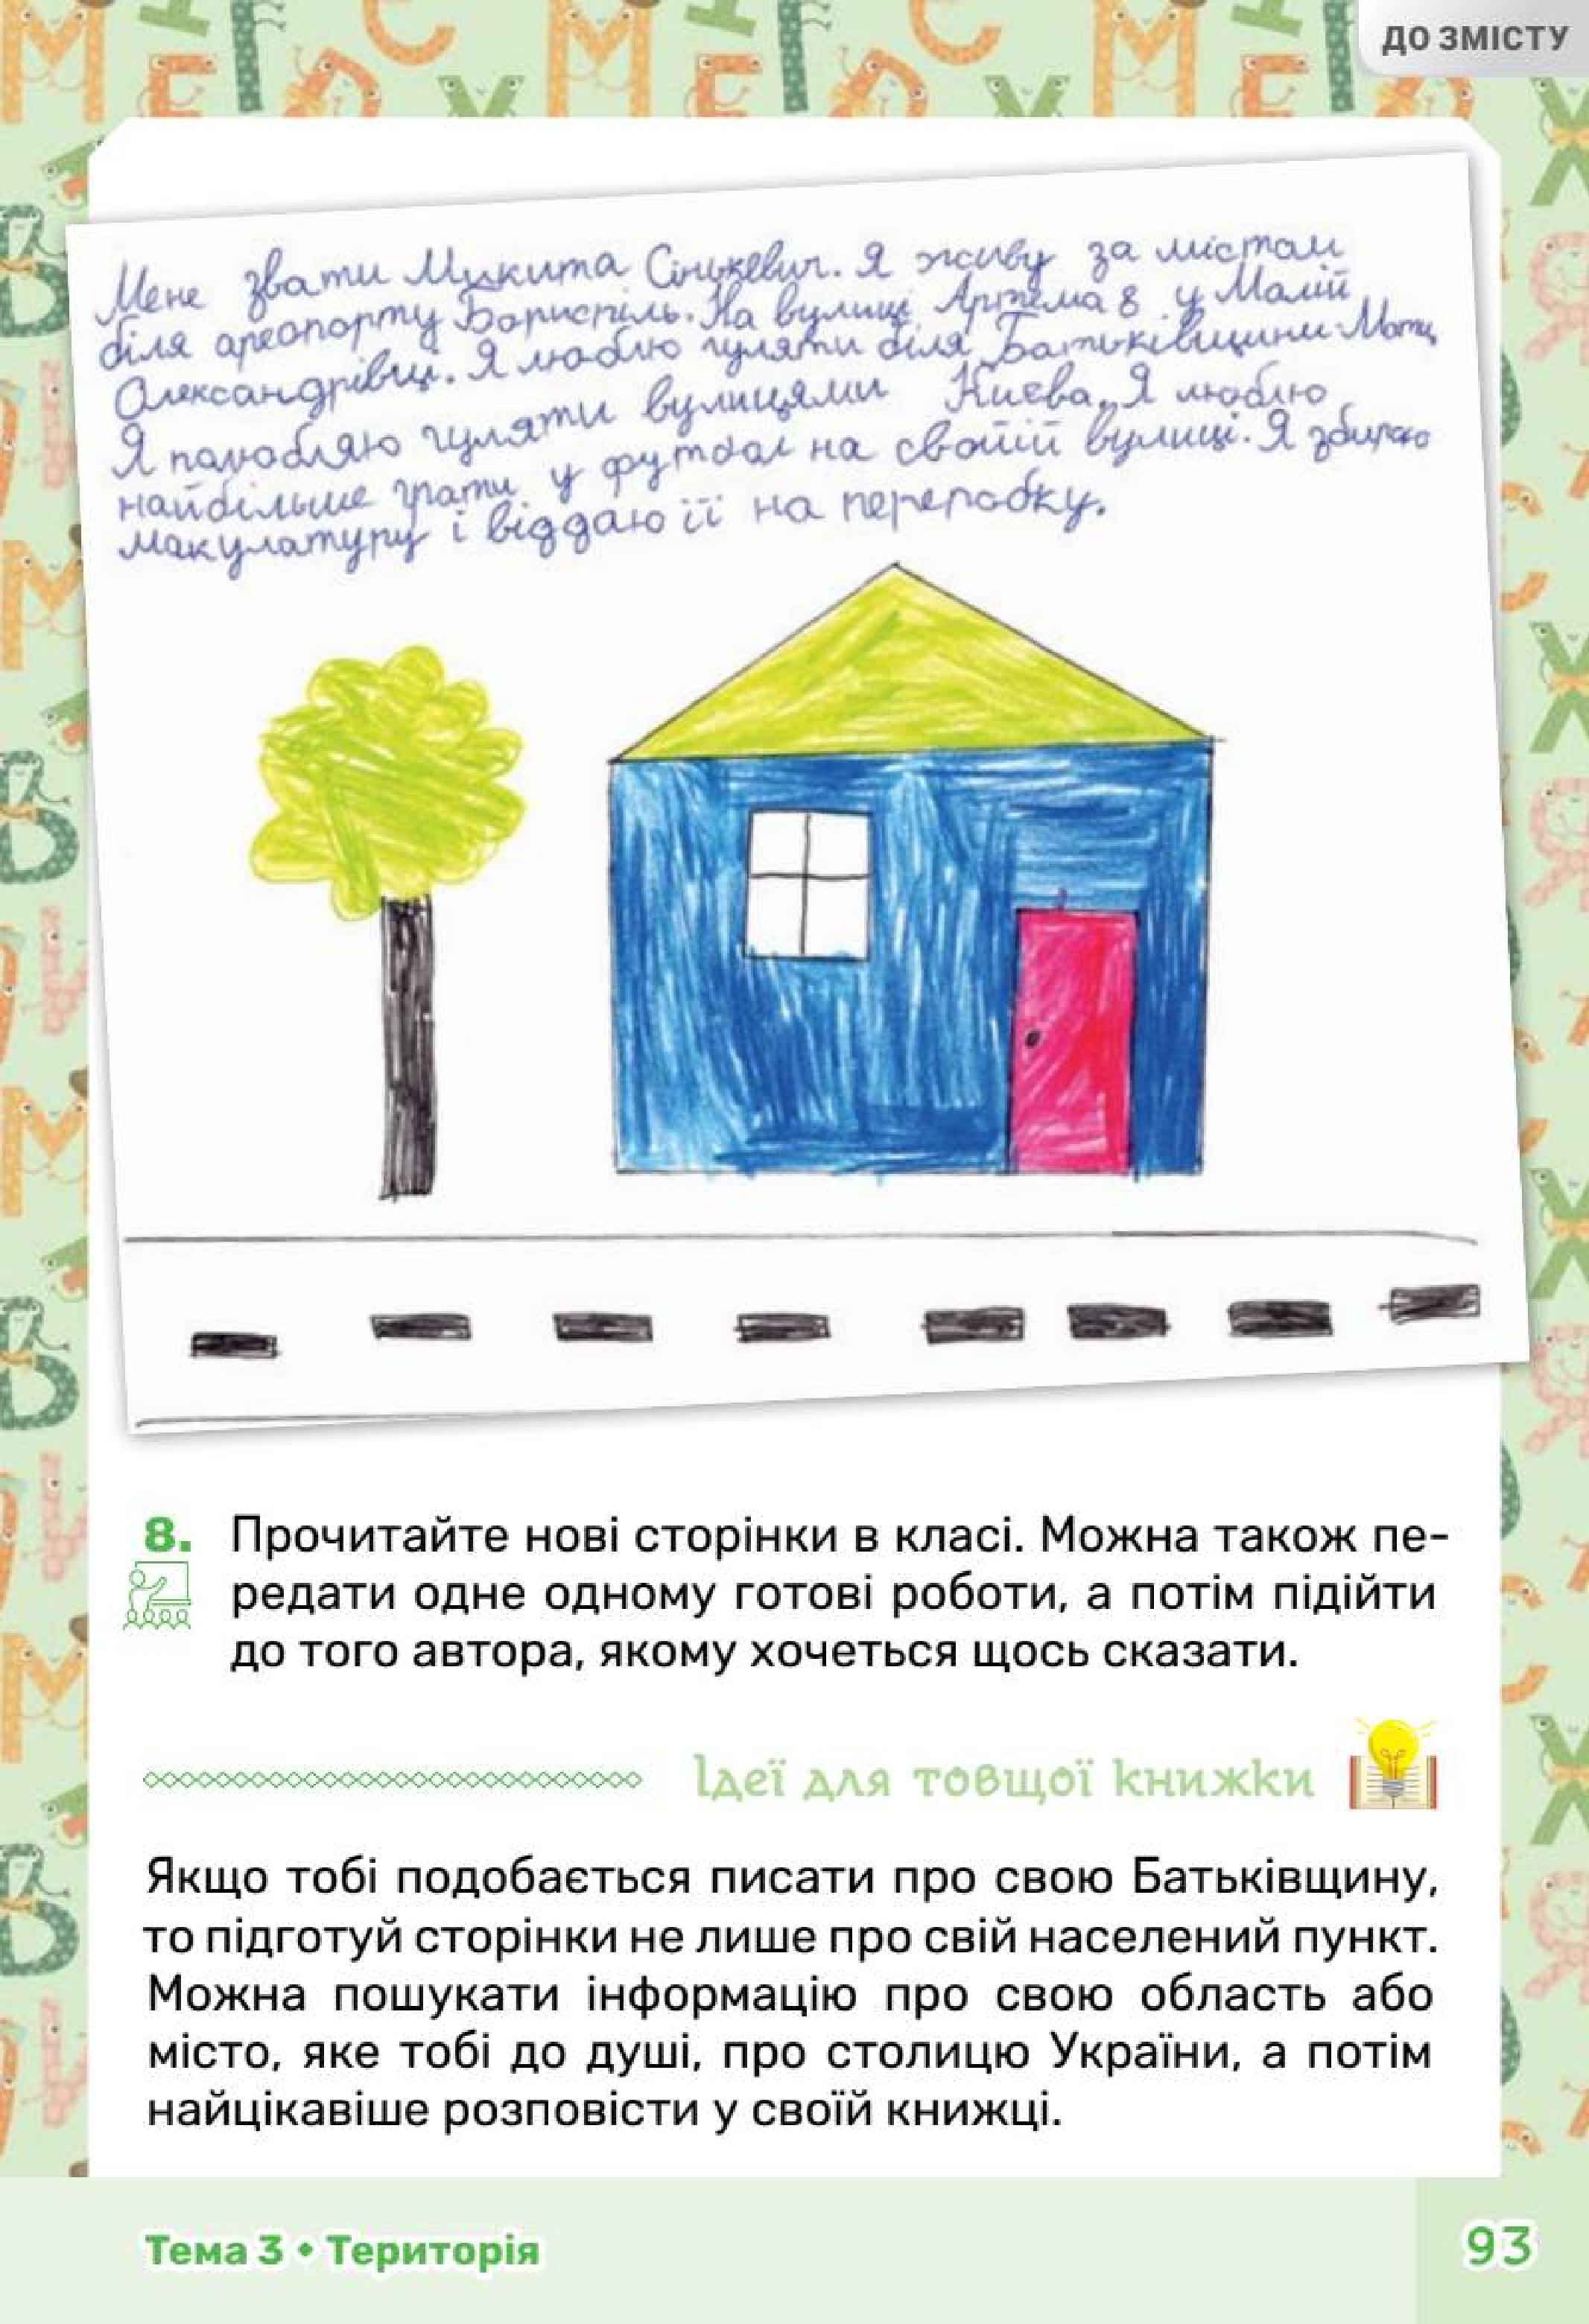 ДО ЗМІСТУ
Мене звати Микита Сінькевич. Я живу за містом
біля ареопорту Бориспіль. На вулиці Артема 8 у Малій
Олександрівці. Я люблю гуляти біля Батьківщини-Мати,
Я полюбляю гуляти вулицями Києва. Я люблю
найбільше грати у футбол на своїй вулиці. Я збираю
макулатуру і віддаю її на переробку.
8. Прочитайте нові сторінки в класі. Можна також пе-
редати одне одному готові роботи, а потім підійти
до того автора, якому хочеться щось сказати.
Ідеї для товщої книжки
Якщо тобі подобається писати про свою Батьківщину,
то підготуй сторінки не лише про свій населений пункт.
Можна пошукати інформацію про свою область або
місто, яке тобі до душі, про столицю України, а потім
найцікавіше розповісти у своїй книжці.
Тема 3 • Територія
93